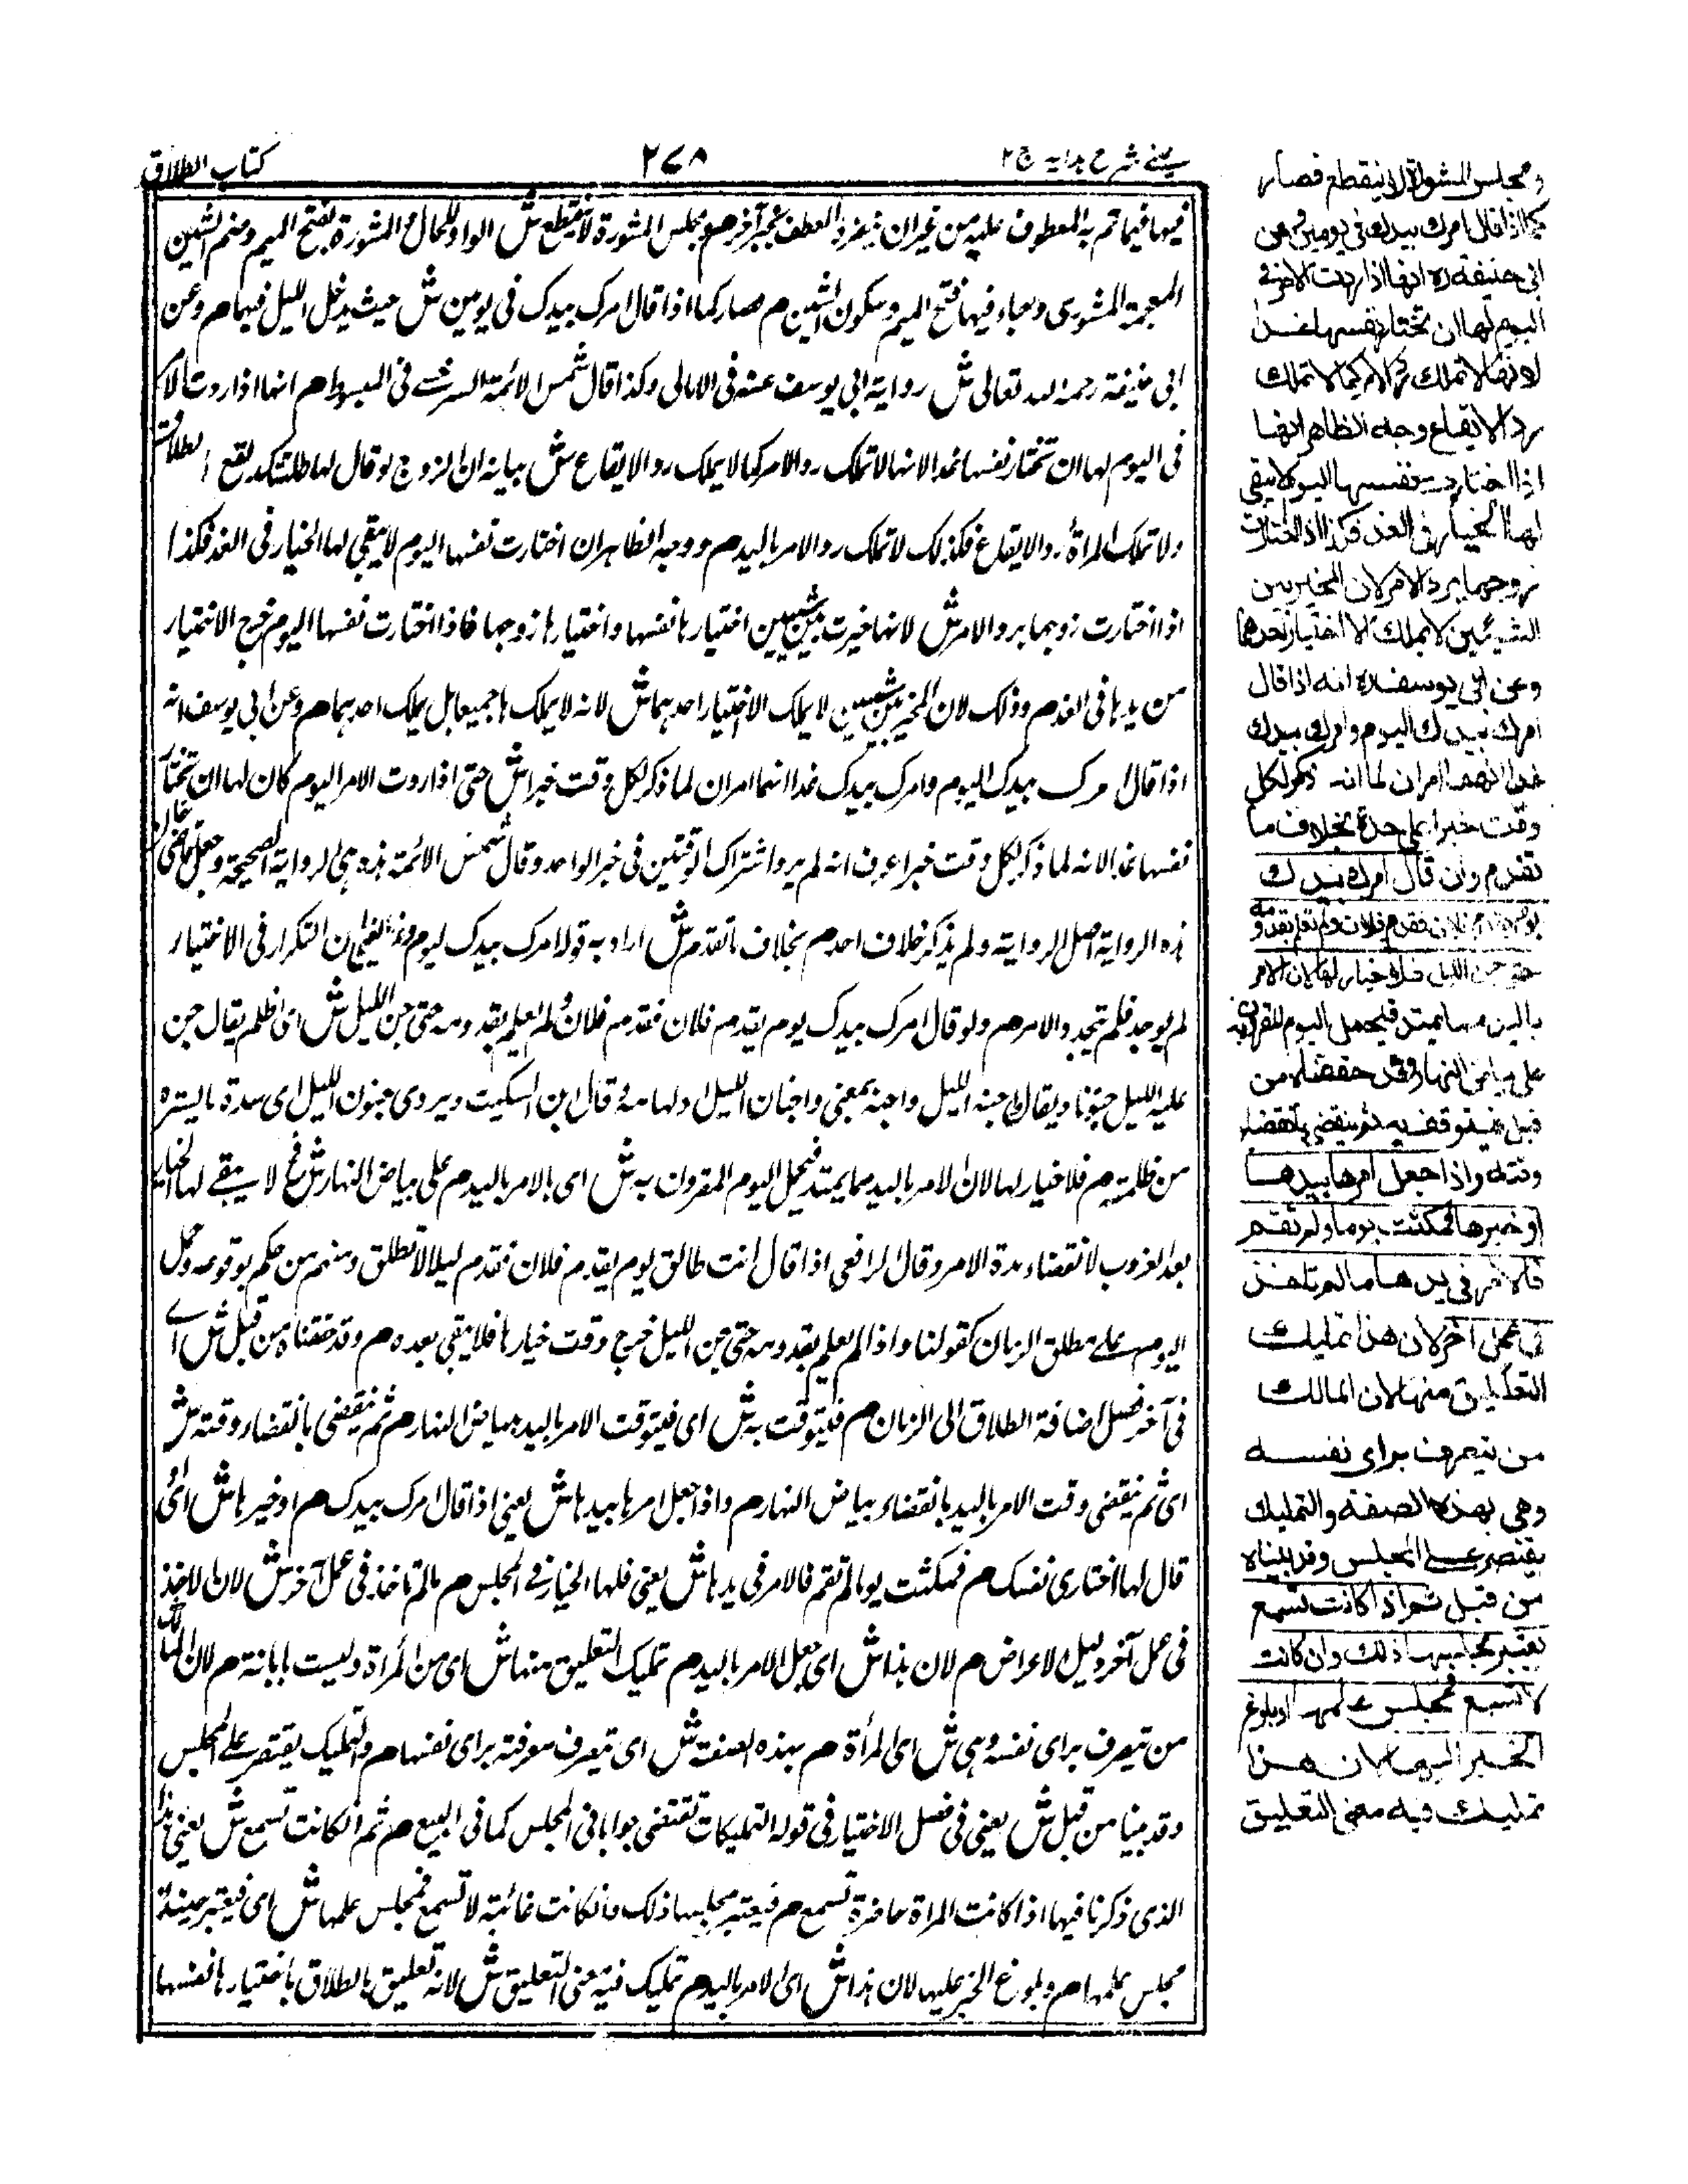 عينى شرح هداية ج ٢
٢٧٨
كتاب الطلاق
فيها فيما تم به المعطوف عليه من غير ان يفرد العطف بخبر آخر م ومجلس المشورة لا ينقطع ش الواو للحال والمشورة بفتح الميم وضم الشين
المعجمة المشورى وجاء فيها فتح الميم وسكون الشين م صار كما اذا قال امرك بيدك فى يومين ش حيث يدخل الليل فيها م وعن
ابى حنيفة رحمه الله تعالى ش رواية ابى يوسف عنه فى الامالى وكذا قال شمس الائمة السرخسى فى المبسوط م انها اذا ردت الامر
فى اليوم لها ان تختار نفسها غدا لانها لا تملك رد الامر كما لا يملك رد الايقاع ش بيانه ان الزوج لو قال لها طلقتك يقع الطلاق
ولا تملك المرأة رد الايقاع فكذلك لا تملك رد الامر باليد م ووجه الظاهر ان اختارت نفسها اليوم لا يبقى لها الخيار فى الغد فكذا
اذا اختارت زوجها برد الامر ش لانها خيرت بين شيئين اختيارها نفسها واختيارها زوجها فاذا اختارت نفسها اليوم خرج الاختيار
من يدها فى الغد م وذلك لان المخير بين شيئين لا يملك الا اختيار احدهما ش لانه لا يملكها جميعا بل يملك احدهما م وعن ابى يوسف انه
اذا قال امرك بيدك اليوم وامرك بيدك غدا انهما امران لما ذكر لكل وقت خبرا ش حتى اذا ردت الامر اليوم كان لها ان تختار
نفسها غدا لانه لما ذكر لكل وقت خبرا عرف انه لم يرد اشتراك الوقتين فى خبر الواحد وقال شمس الائمة هذه هى الرواية الصحيحة وجعل قاضى خان
هذه الرواية اصل الرواية ولم يذكر خلاف احد م بخلاف ما تقدم ش اراد به قوله امرك بيدك اليوم وغدا ان التكرار فى الاختيار
لم يوجد فلم يتجدد الامر م ولو قال امرك بيدك يوم يقدم فلان فقدم فلان ولم تعلم بقدومه حتى جن الليل ش اى اظلم يقال جن
عليه الليل جنونا ويقال جنه الليل واجنه بمعنى واجنان الليل ادلهامه وقال ابن السكيت ويروى جنون الليل اى سدة ما يستره
من ظلمته م فلا خيار لها لان الامر باليد مما يمتد فيحمل اليوم المقرون به ش اى بالامر باليد م على بياض النهار ش فح لا يبقى لها الخيار
بعد الغروب لانقضاء مدة الامر وقال الرافعى اذا قال انت طالق يوم يقدم فلان فقدم ليلا لا تطلق ومنهم من حكم بوقوعه وحمل
اليوم على مطلق الزمان كقولنا واذا لم يعلم بقدومه حتى جن الليل خرج وقت خيارها فلا يبقى بعده م وقد حققناه من قبل ش اى
فى آخر فصل اضافة الطلاق الى الزمان م فيتوقت به ش اى فيتوقت الامر باليد ببياض النهار م ثم ينقضى بانقضاء وقته ش
اى ثم ينقضى وقت الامر باليد بانقضاء بياض النهار م واذا جعل امرها بيدها ش يعنى اذا قال امرك بيدك م او خيرها ش اى او
قال لها اختارى نفسك م فمكثت يوما لم تقم فالامر فى يدها ش يعنى فلها الخيار فى المجلس م ما لم تاخذ فى عمل آخر ش لان الاخذ
فى عمل آخر دليل الاعراض م لان هذا ش اى جعل الامر باليد م تمليك التطليق منها ش اى من المرأة وليست بابانة م لان المالك
من يتصرف براى نفسه وهى ش اى المرأة م بهذه الصفة ش اى تتصرف معرفته براى نفسها م والتمليك يقتصر على المجلس
وقد بينا من قبل ش يعنى فى فصل الاختيار فى قوله التمليكات تقتضى جوابا فى المجلس كما فى البيع م ثم ان كانت تسمع ش يعنى هذا
الذى ذكرنا فيها اذا كانت المراة حاضرة تسمع م فيعتبر مجلسها ذلك وان كانت غائبة لا تسمع فمجلس علمها ش اى فيعتبر حينئذ
مجلس علمها م وبلوغ الخبر عليها لان هذا ش اى الامر باليد م تمليك فيه معنى التعليق ش لانه تعليق بالطلاق باختيارها نفسها
ومجلس المشورة لا ينقطع فصار
كما اذا قال امرك بيدك فى يومين وعن
ابى حنيفة ره انها اذا ردت الامر فى
اليوم لها ان تختار نفسها غدا
لانها لا تملك رد الامر كما لا تملك
رد الايقاع وجه الظاهر انها
اذا اختارت نفسها اليوم لا يبقى
لها الخيار فى الغد فكذا اذا اختارت
زوجها برد الامر لان المخير بين
الشيئين لا يملك الا اختيار احدهما
وعن ابى يوسف ره انه اذا قال
امرك بيدك اليوم وامرك بيدك
غدا انهما امران لما انه ذكر لكل
وقت خبرا على حدة بخلاف ما
تقدم وان قال امرك بيدك
يوم يقدم فلان فقدم فلان ولم تعلم بقدومه
حتى جن الليل فلا خيار لها لان الامر
باليد مما يمتد فيحمل اليوم المقرون به
على بياض النهار وقد حققناه من
قبل فيتوقت به ثم ينقضى بانقضاء
وقته واذا جعل امرها بيدها
او خيرها فمكثت يوما ولم تقم
فالامر فى يدها ما لم تاخذ
فى عمل آخر لان هذا تمليك
التطليق منها لان المالك
من يتصرف براى نفسه
وهى بهذه الصفة والتمليك
يقتصر على المجلس وقد بيناه
من قبل ثم اذا كانت تسمع
يعتبر مجلسها ذلك وان كانت
لا تسمع فمجلس علمها او بلوغ
الخبر اليها لان هذا
تمليك فيه معنى التعليق